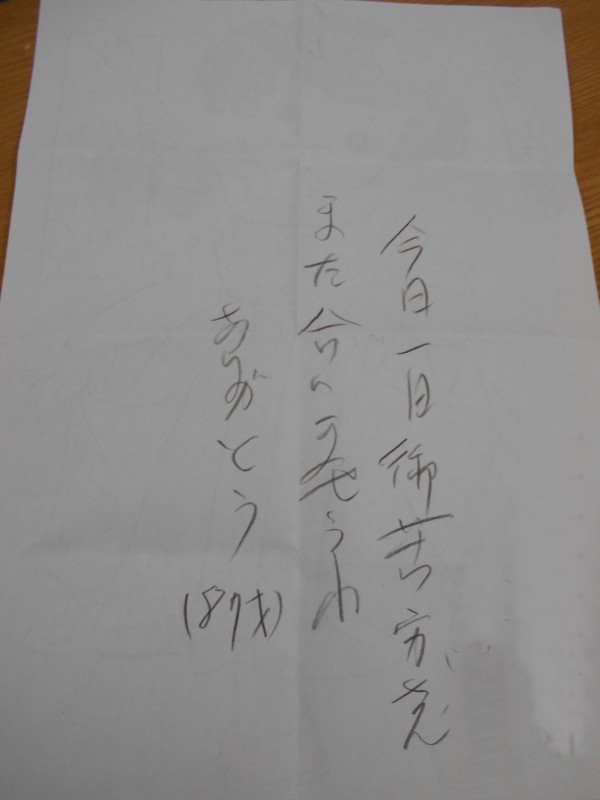 今日一日御苦労さん
また合いませうね
ありがとう(87才)